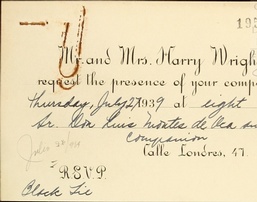 195
Mr. and Mrs. Harry Wright
request the presence of your comp
Thursday, July 27 1939 at eight
Sr. Don Luis Montes de Oca and
Companion
Calle Londres, 47.
R.S.V.P.
Black Tie